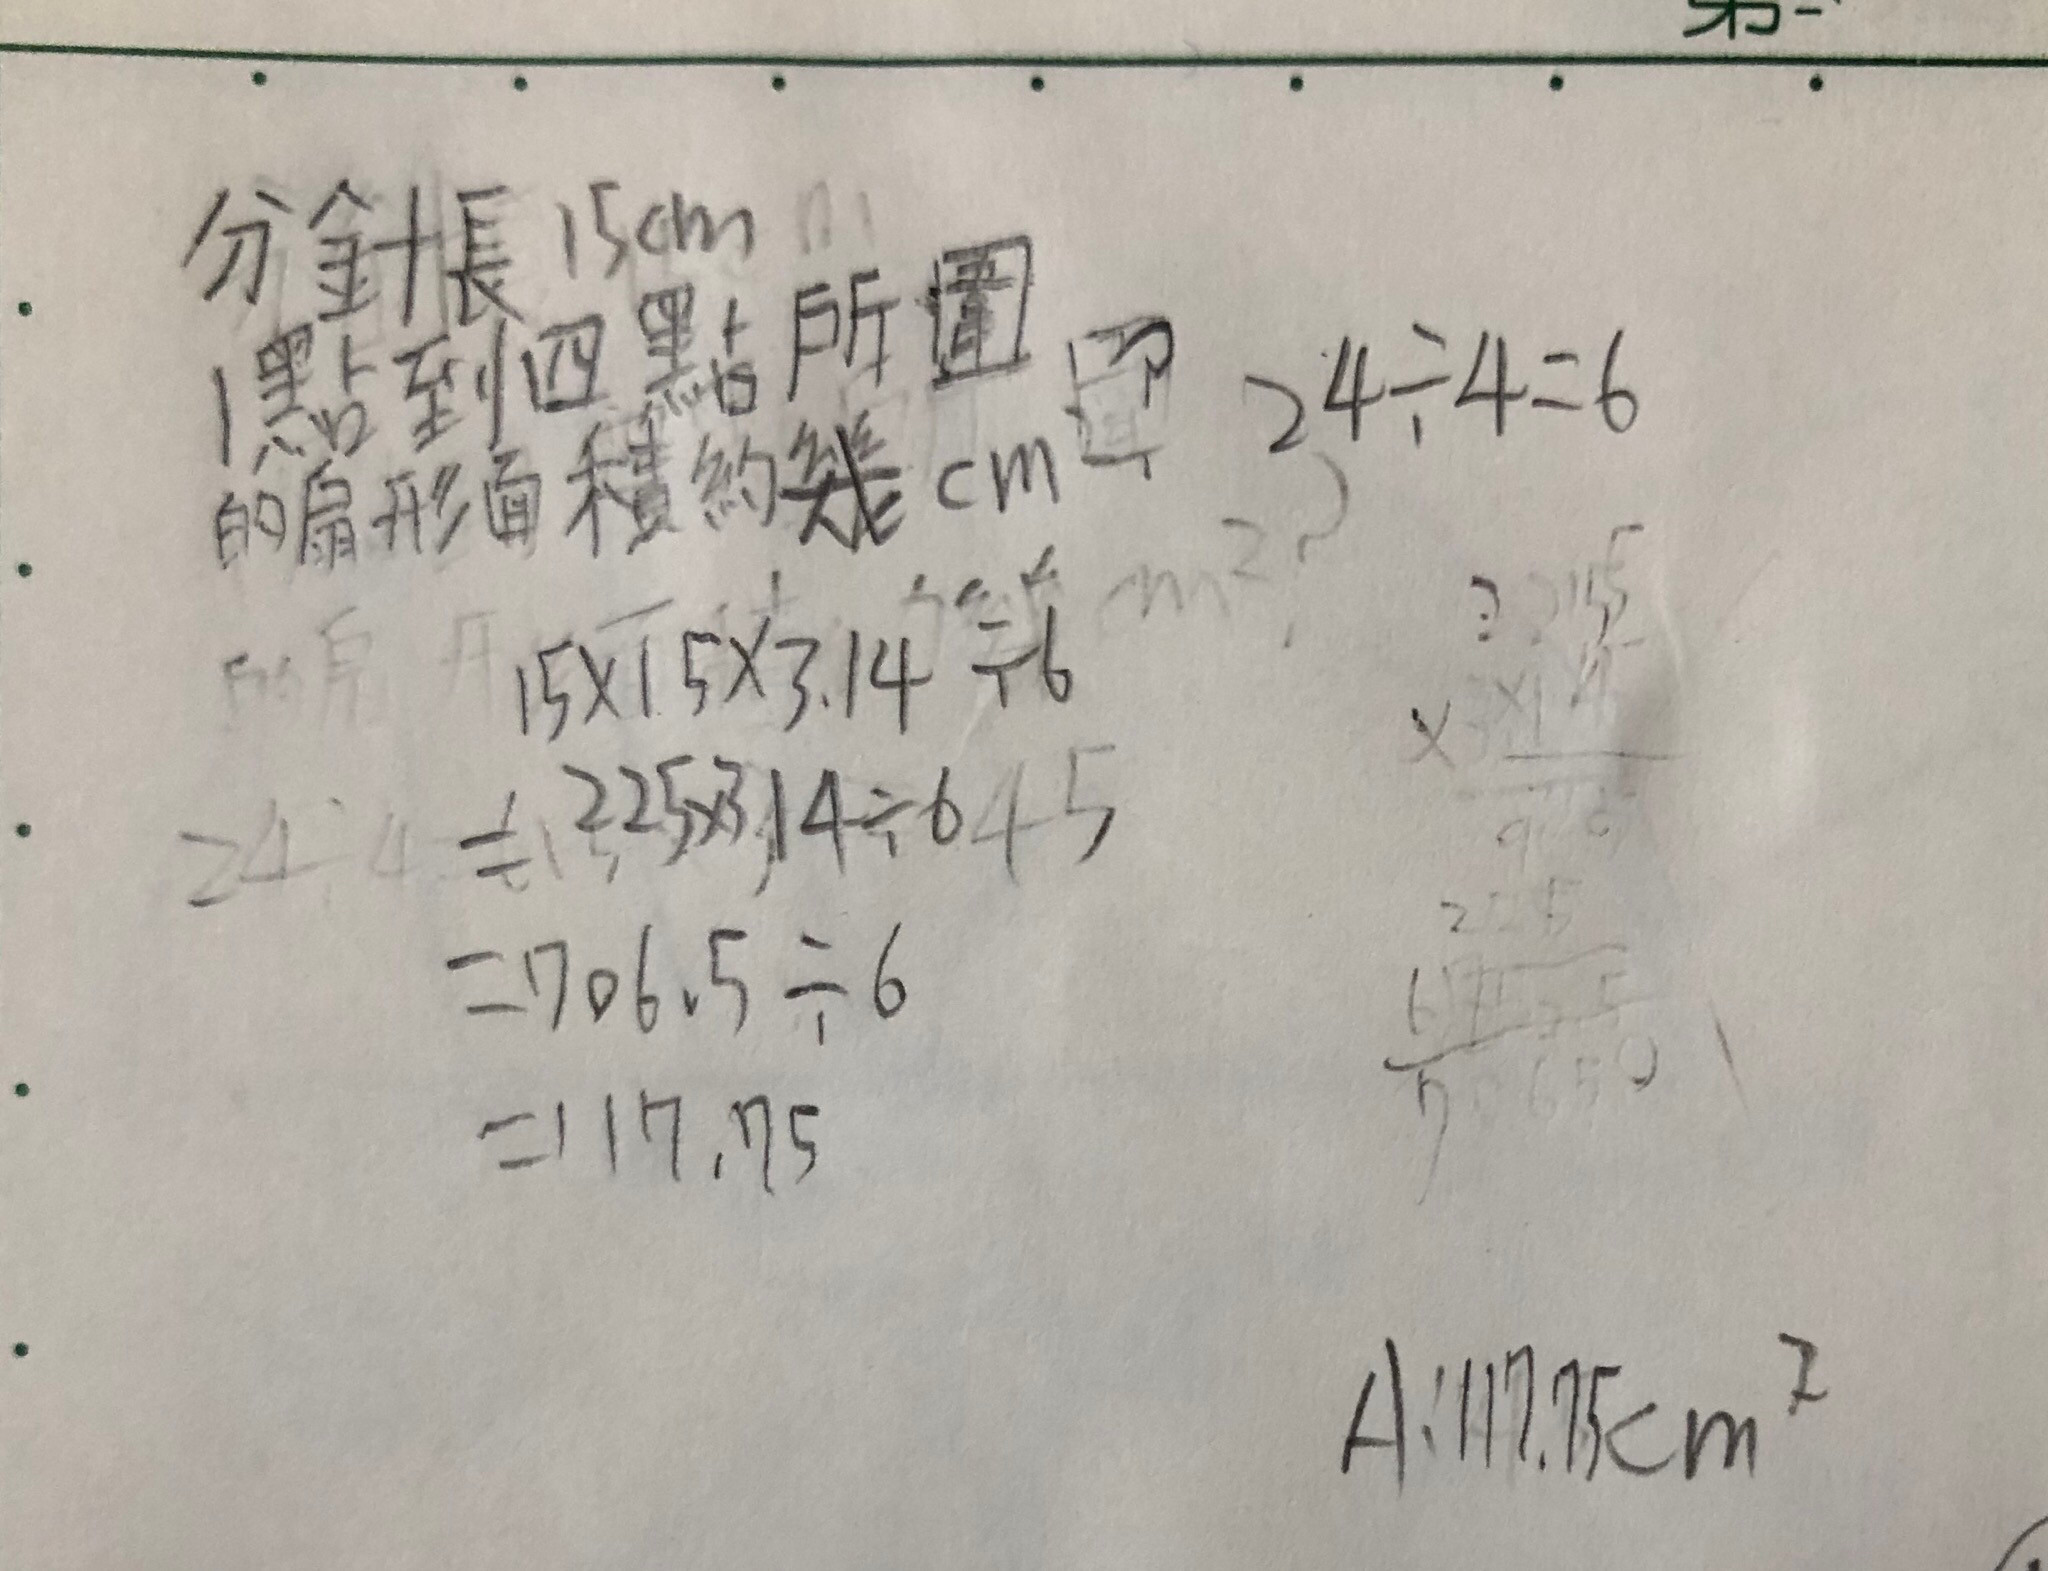 第一
分針長 15cm
1點到四點所圍
的扇形面積約幾 cm²?
24÷4=6
15×15×3.14÷6
=225×3.14÷6
=706.5÷6
=117.75
A:117.75cm²